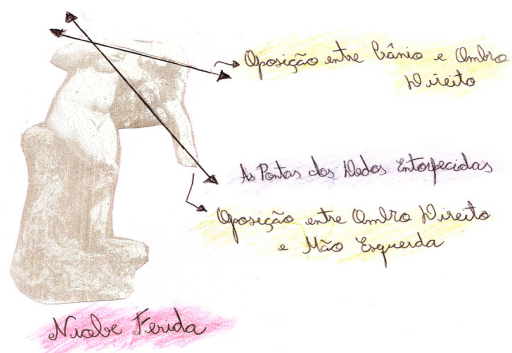 Oposição entre Crânio e Ombro
Direito
As Pontas dos Dedos Entorpecidas
Oposição entre Ombro Direito
e Mão Esquerda
Niobe Ferida